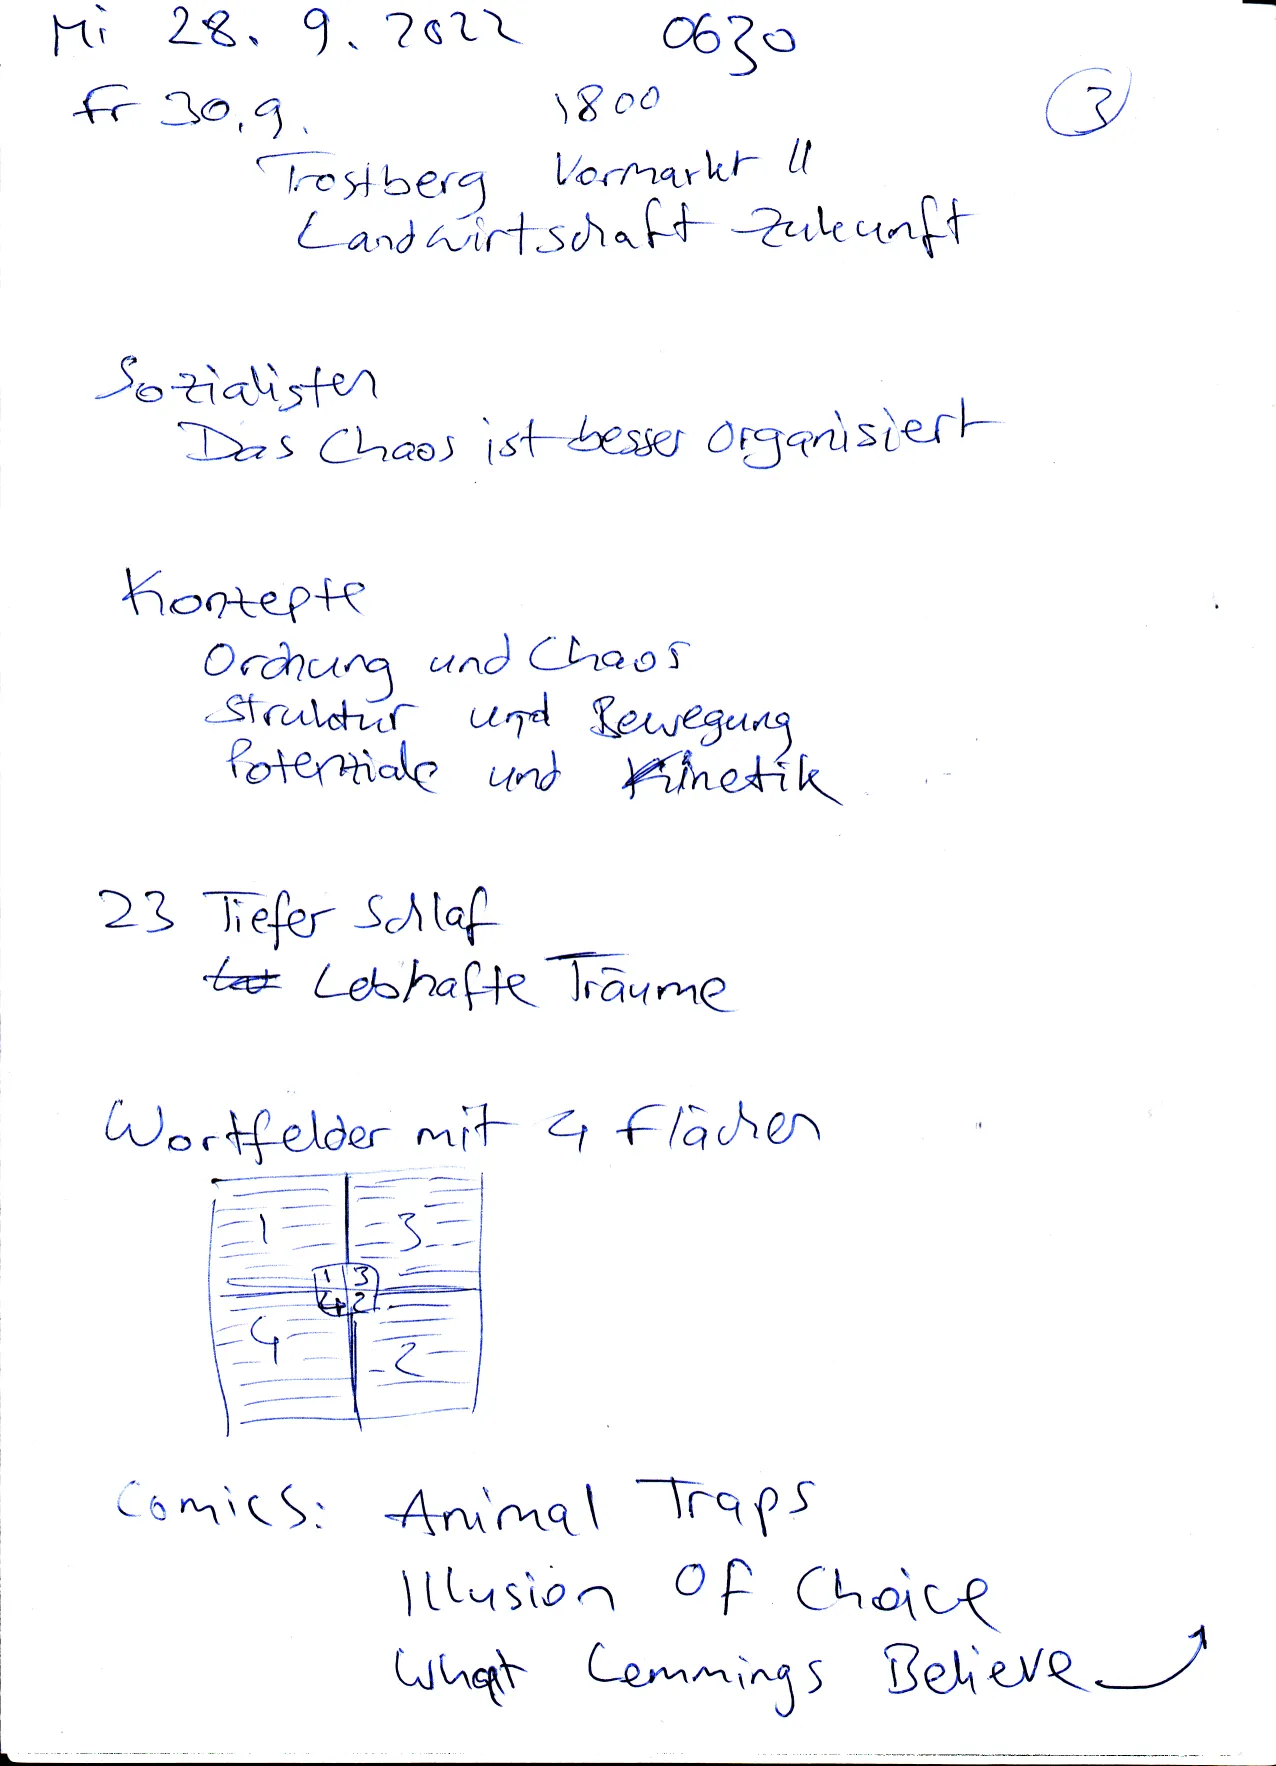 Mi 28. 9. 2022 0630
Fr 30.9. 1800 3
Trostberg Vormarkt 11
Landwirtschaft Zukunft
Sozialisten
Das Chaos ist besser organisiert
Konzepte
Ordnung und Chaos
Struktur und Bewegung
Potenziale und Kinetik
23 Tiefer Schlaf
Lebhafte Träume
Wortfelder mit 4 Flächen
1 3
1 3
4 2
4 2
Comics: Animal Traps
Illusion Of Choice
What Lemmings Believe